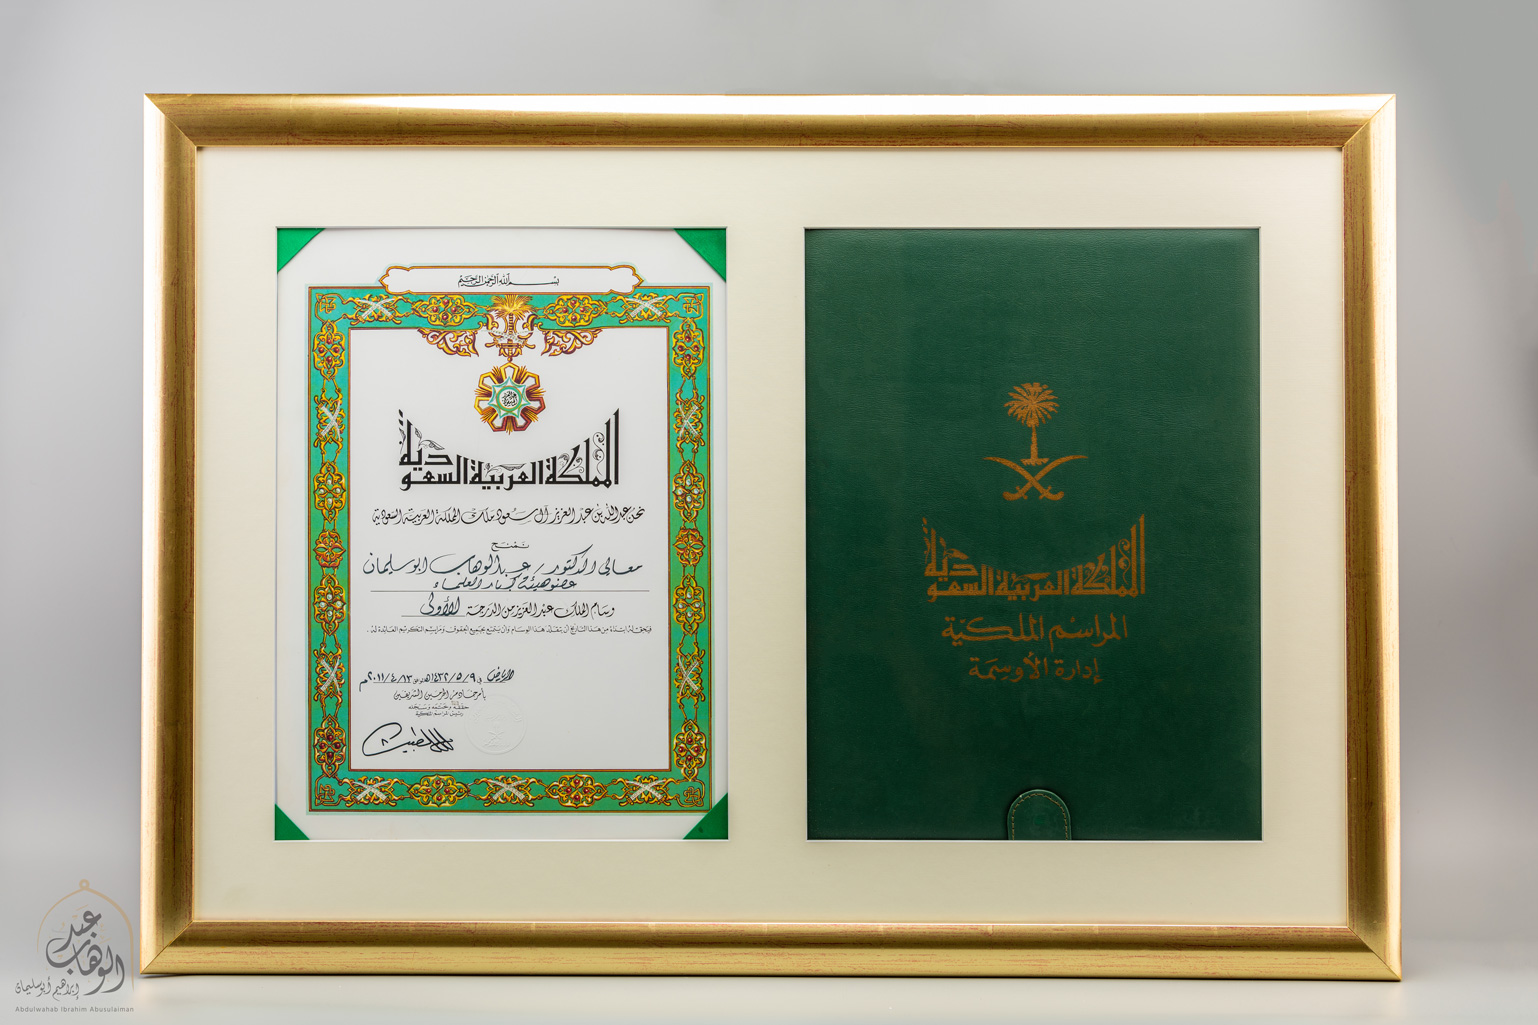 بسم الله الرحمن الرحيم
المملكة العربية السعودية
نحن عبدالله بن عبد العزيز آل سعود ملك المملكة العربية السعودية
نمنح
معالي الدكتور / عبد الوهاب ابو سليمان
عضو هيئة كبار العلماء
وسام الملك عبد العزيز من الدرجة الأولى
فيحق له ابتداء من هذا التاريخ أن يتقلد هذا الوسام وأن يتمتع بجميع الحقوق ومراسم التكريم العائدة له .
الرياض في ١٤٣٢/٥/٩هـ الموافق ٢٠١١/٤/١٣م
بأمر خادم الحرمين الشريفين
حققه وختمه وسجله
رئيس المراسم الملكية
المملكة العربية السعودية
المراسم الملكية
إدارة الأوسمة
عبد الوهاب
إبراهيم أبو سليمان
Abdulwahab Ibrahim Abusulaiman